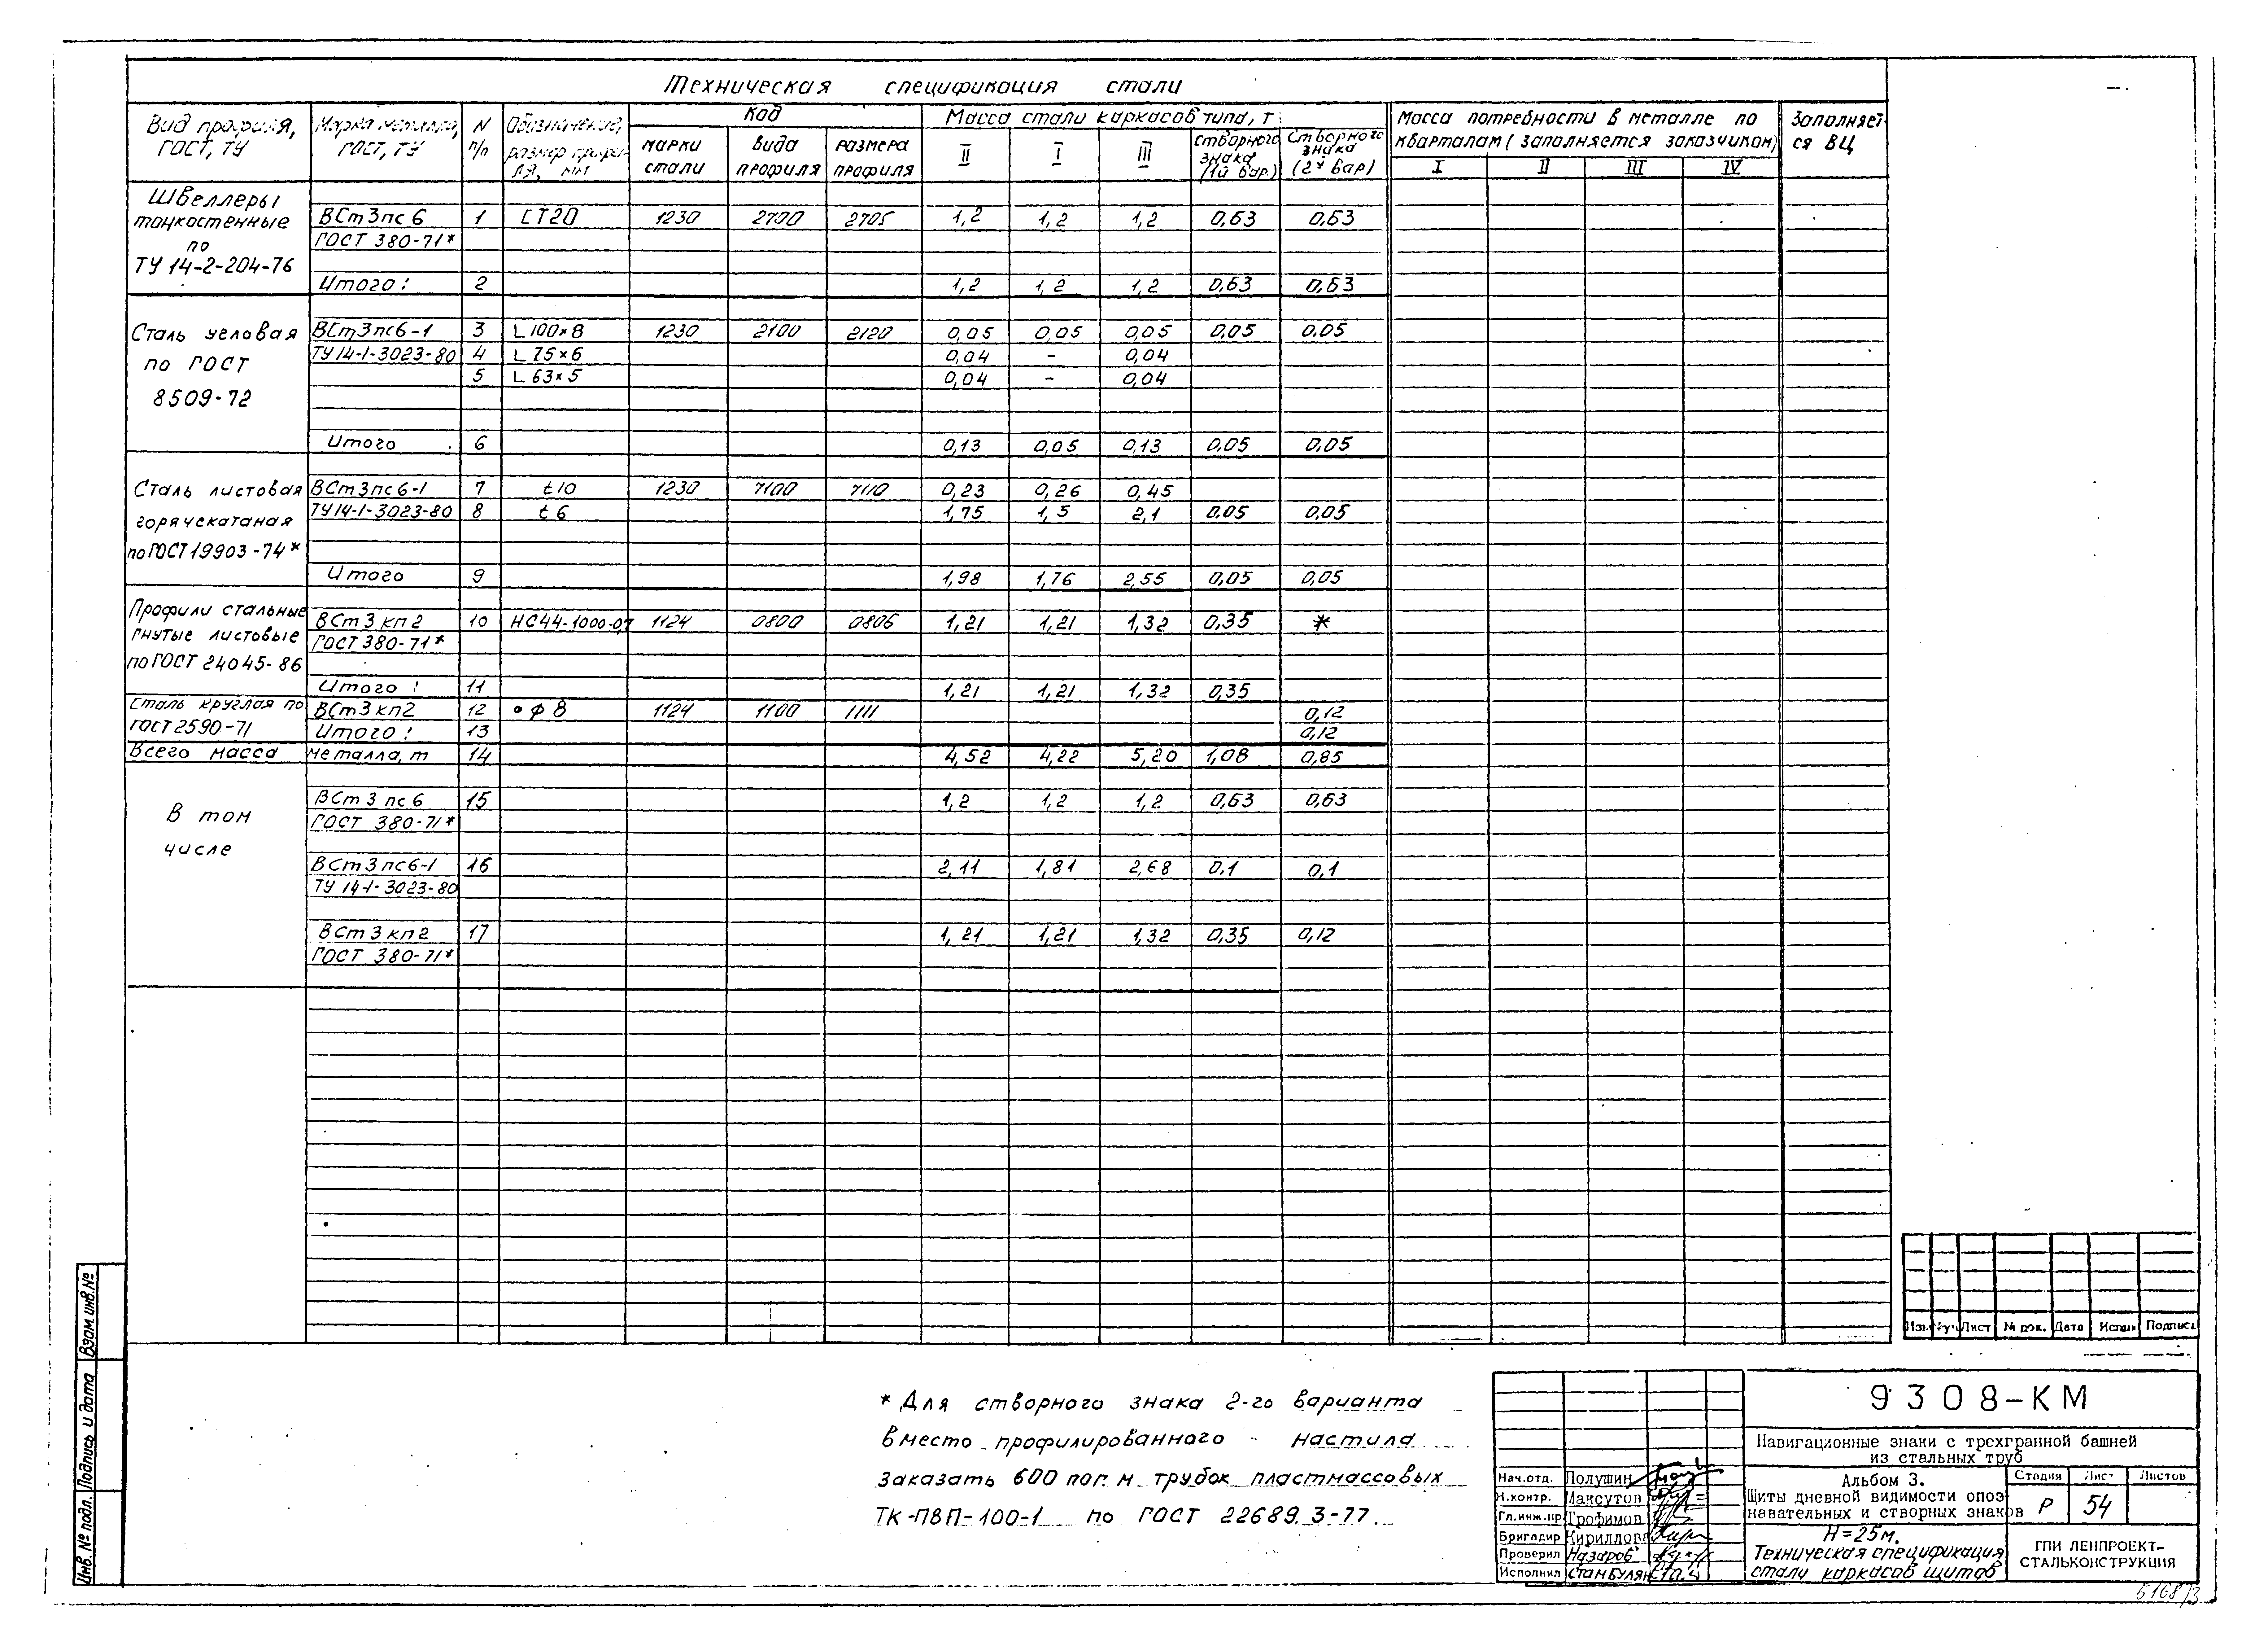 Техническая спецификация стали
Вид профиля, ГОСТ, ТУ
Марка металла, ГОСТ, ТУ
N п/п
Обозначение, размер профиля, мм
Код
марки стали
вида профиля
размера профиля
Масса стали каркасов типа, т
II I III створного знака (1й вар.) Створного знака (2й вар)
Масса потребности в металле по
кварталам (заполняется заказчиком)
I II III IV
Заполняет-
ся ВЦ
Швеллеры
тонкостенные
по
ТУ 14-2-204-76
ВСт3пс6 1 СТ20 1230 2700 2705 1,2 1,2 1,2 0,63 0,63
ГОСТ 380-71*
Итого: 2 1,2 1,2 1,2 0,63 0,63
Сталь угловая
по ГОСТ
8509-72
ВСт3пс6-1 3 L 100×8 1230 2100 2120 0,05 0,05 0,05 0,05 0,05
ТУ14-1-3023-80 4 L 75×6 0,04 - 0,04
5 L 63×5 0,04 - 0,04
Итого 6 0,13 0,05 0,13 0,05 0,05
Сталь листовая
горячекатаная
по ГОСТ 19903-74*
ВСт3пс6-1 7 t10 1230 7100 7110 0,23 0,26 0,45
ТУ14-1-3023-80 8 t6 1,75 1,5 2,1 0,05 0,05
Итого 9 1,98 1,76 2,55 0,05 0,05
Профили стальные
гнутые листовые
по ГОСТ 24045-86
ВСт3кп2 10 НС44-1000-0,7 1124 0800 0806 1,21 1,21 1,32 0,35 *
ГОСТ380-71*
Итого: 11 1,21 1,21 1,32 0,35
Сталь круглая по
ГОСТ2590-71
ВСт3кп2 12 • ф 8 1124 1100 1111 0,12
Итого: 13 0,12
Всего масса металла, т 14 4,52 4,22 5,20 1,08 0,85
В том
числе
ВСт3пс6 15 1,2 1,2 1,2 0,63 0,63
ГОСТ 380-71*
ВСт3пс6-1 16 2,11 1,81 2,68 0,1 0,1
ТУ 14-1-3023-80
ВСт3кп2 17 1,21 1,21 1,32 0,35 0,12
ГОСТ 380-71*
* Для створного знака 2-го варианта
вместо профилированного настила
заказать 600 пог. м трубок пластмассовых
ТК-ПВП-100-1 по ГОСТ 22689.3-77.
Инв. № подл. Подпись и дата Взам. инв. №
Лист № док. Дата Подпись
9308-КМ
Навигационные знаки с трехгранной башней
из стальных труб
Альбом 3.
Щиты дневной видимости опоз-
навательных и створных знаков
Н=25м.
Техническая спецификация
стали каркасов щитов
Стадия Лист Листов
Р 54
ГПИ ЛЕНПРОЕКТ-
СТАЛЬКОНСТРУКЦИЯ
Нач.отд. Полушин
Н.контр. Максутов
Гл.инж.пр Трофимов
Бригадир Кириллова
Проверил Назаров
Исполнил Стамбулян
5168/3